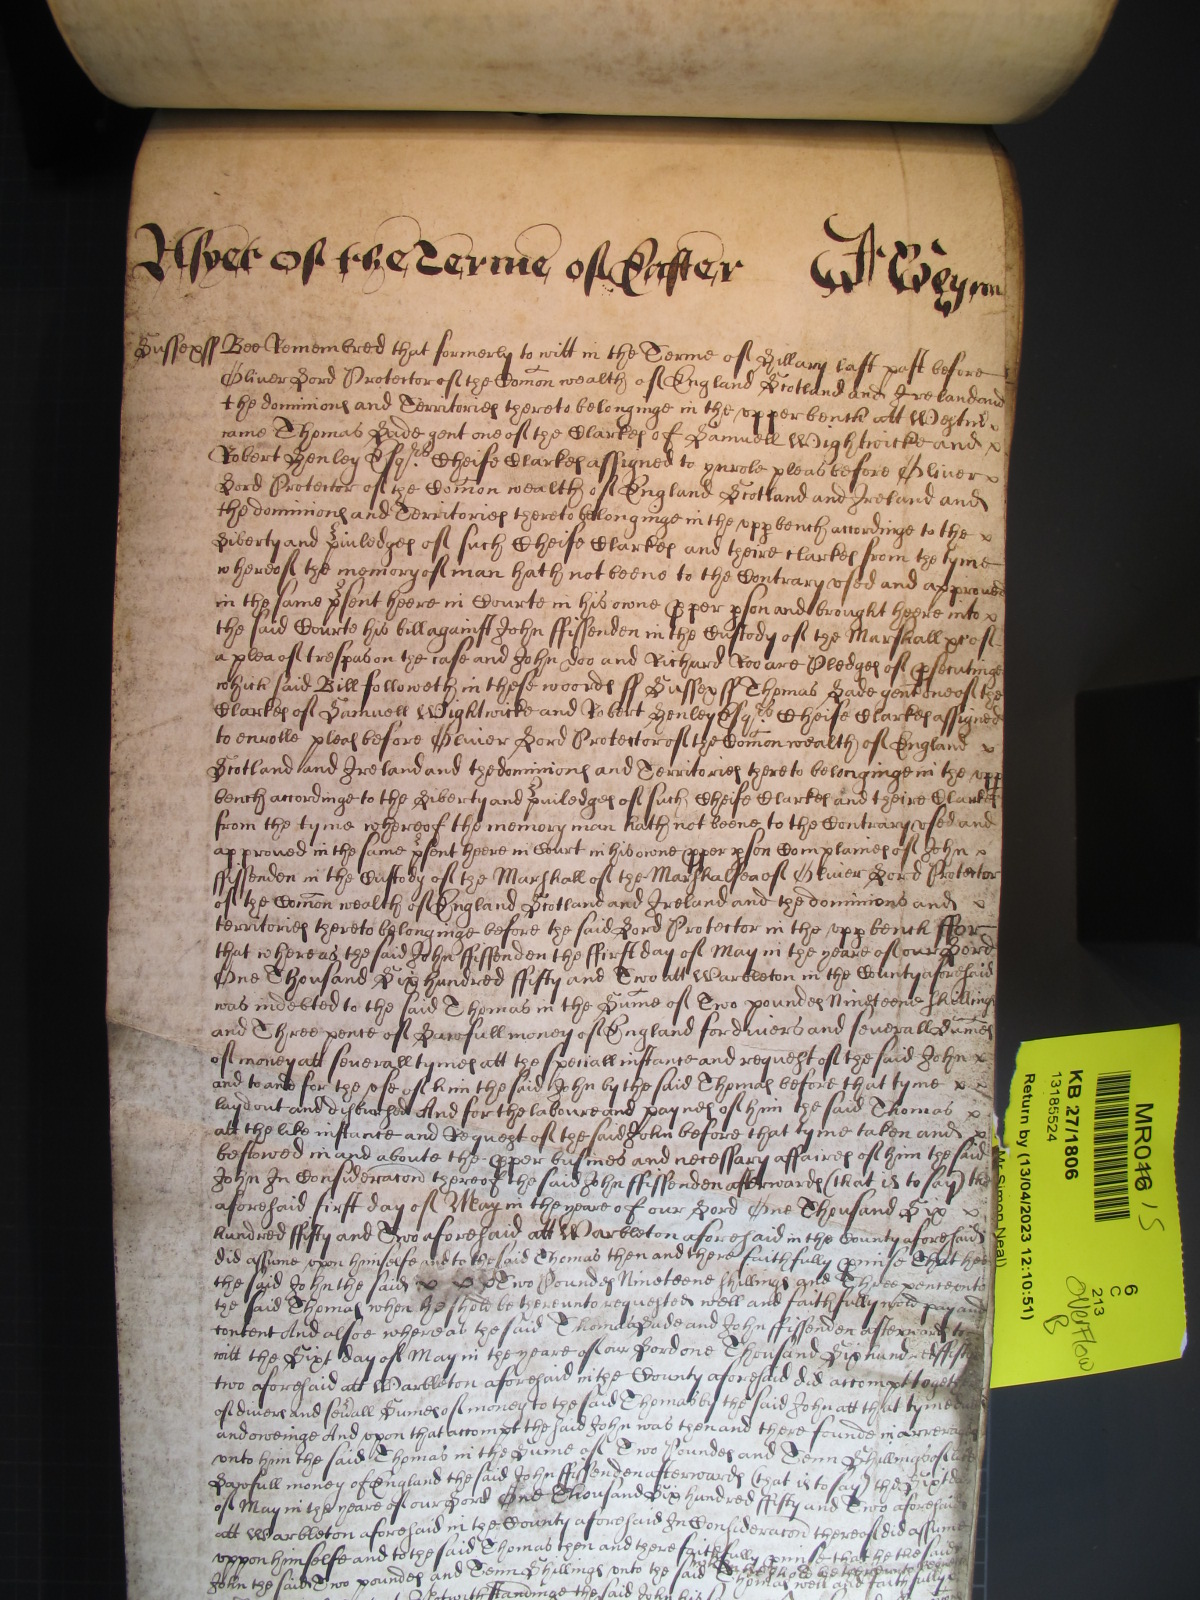 As yet of the Terme of Easter Witt Wigm
Sussex ff Bee Remembred that formerly to witt in the Terme of Hillary last past before
Oliver Lord Protector of the Comon wealth of England Scotland and Ireland and
the dominions and Territories thereto belonginge in the upper bench att Westmr
came Thomas Lade gent one of the Clarkes of Samuell Wightwicke and
Robert Henley Esqrs Cheife Clarkes assigned to ynrole pleas before Oliver
Lord Protector of the Comon wealth of England Scotland and Ireland and
the dominions and Territories thereto belonginge in the upp bench accordinge to the
Liberty and priuledges of such Cheife Clarkes and theire clarkes from the tyme
whereof the memory of man hath not beene to the Contrary used and approued
in the same psent heere in Courte in his owne pper pson and brought heere into
the said Courte his bill against John ffissenden in the Custody of the Marshall &c of
a plea of trespas on the case and John Doo and Richard Roo are Pledges of psecutinge
which said Bill followeth in these woords ss Sussex ss Thomas Lade gent one of the
Clarkes of Samuell Wightwicke and Robert Henley Esqrs Cheife Clarkes assigned
to enrolle pleas before Oliver Lord Protector of the Comon wealth of England
Scotland and Ireland and the dominions and Territories thereto belonginge in the upp
bench accordinge to the Liberty and priuledges of such Cheife Clarkes and theire Clarkes
from the tyme whereof the memory man hath not beene to the Contrary used and
approued in the same psent heere in Court in his owne pper pson Complaines of John
ffissenden in the Custody of the Marshall of the Marshalsea of Oliver Lord Protector
of the Comon wealth of England Scotland and Ireland and the dominions and
territories thereto belonginge before the said Lord Protector in the upp bench ffor
that whereas the said John ffissenden the ffirst day of May in the yeare of our Lord
One Thousand Six hundred ffifty and Two att Warbleton in the County aforesaid
was indebted to the said Thomas in the Sume of Two poundes Nineteene shillings
and Three pence of Lawfull money of England for divers and severall Sumes
of money att severall tymes att the speciall instance and request of the said John
and to and for the use of him the said John by the said Thomas before that tyme
laydout and disbursed And for the laboure and paynes of him the said Thomas
att the like instance and Request of the said John before that tyme taken and
bestowed in and aboute the pper busines and necessary affaires of him the said
John In Consideracon thereof the said John ffissenden afterwards (that is to say) the
aforesaid first day of May in the yeare of our Lord One Thousand Six
hundred ffifty and Two aforesaid att Warbleton aforesaid in the County aforesaid
did assume upon himselfe and to the said Thomas then and there faithfully pmise That hee
the said John the said Two Poundes Nineteene shillings and Three pence unto
the said Thomas when he shold be thereunto requested well and faithfully wold pay and
content And alsoe whereas the said Thomas Lade and John ffissenden afterwards to
witt the Sixt day of May in the yeare of our Lord one Thousand Six hundred ffifty
two aforesaid att Warbleton aforesaid in the County aforesaid did accompt together
of divers and seuall Sumes of money to the said Thomas by the said John att that tyme due
and oweinge And upon that accompt the said John was then and there founde in arrerages
unto him the said Thomas in the Sume of Two Poundes and Tenn Shillings of like
Lawfull money of England the said John ffissenden afterwards (that is to say) the Sixt day
of May in the yeare of our Lord One Thousand Six hundred ffifty and Two aforesaid
att Warbleton aforesaid in the County aforesaid In Consideracon thereof did assume
uppon himselfe and to the said Thomas then and there faithfully pmise that he the said
John the said Two poundes and Tenn Shillings unto the said Thomas well and faithfully
Notwithstandinge the said John his
MR046 15
KB 27/1806
13185524
Return by (13/04/2023 12:10:51)
Mr Simon Neal)
6
C
213
Overflow
B